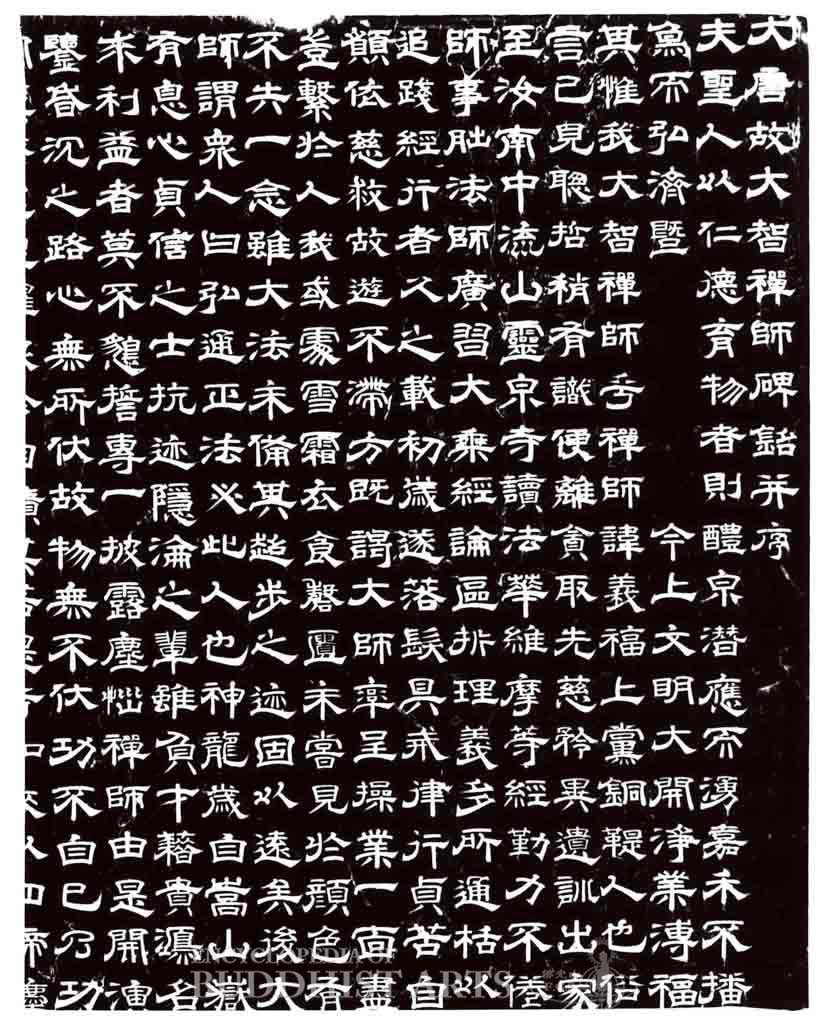 大唐故大智禪師碑銘并序
夫聖人以仁德育物者則醴泉潜應而湧嘉禾不播
為而弘濟曁 今上文明大開淨業溥福
其惟我大智禪師乎禪師諱義福上黨銅鞮人也俗
言已見聰哲稍有識便離貪取先慈矜異遺訓出家
至汝南中流山靈泉寺讀法華維摩等經勤力不倦
師事朏法師廣習大乘經論區析理義多所通括以
追踐經行者久之載初歲遂落髮具戒律行貞苦自
願依慈救故遊不滯方既謁大師率呈操業一面盡
豈繫於人我或處雪霜衣食罄匱未嘗見於顏色有
不失一念雖大法未備其超步之迹固以遠矣後大
師謂衆人曰弘通正法必此人也神龍歲自嵩山嶽
有息心貞信之士抗迹隱淪之輩雖負才藉貴鴻名
求利益者莫不懇誓專一披露塵惱禪師由是開演
鑒昏沉之路心無所伏故物無不伏功不自已乃功
ENCYCLOPEDIA OF
BUDDHIST ARTS